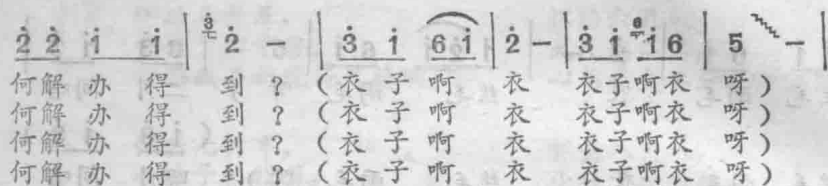 2̇ 2̇ i̇ i̇ | 3̇ 2̇ - | 3̇ i̇ 6 i̇ | 2̇ - | 3̇ i̇ 6 i̇ 6 | 5 - |
何解办得到？（衣子啊衣衣子啊衣呀）
何解办得到？（衣子啊衣衣子啊衣呀）
何解办得到？（衣子啊衣衣子啊衣呀）
何解办得到？（衣子啊衣衣子啊衣呀）